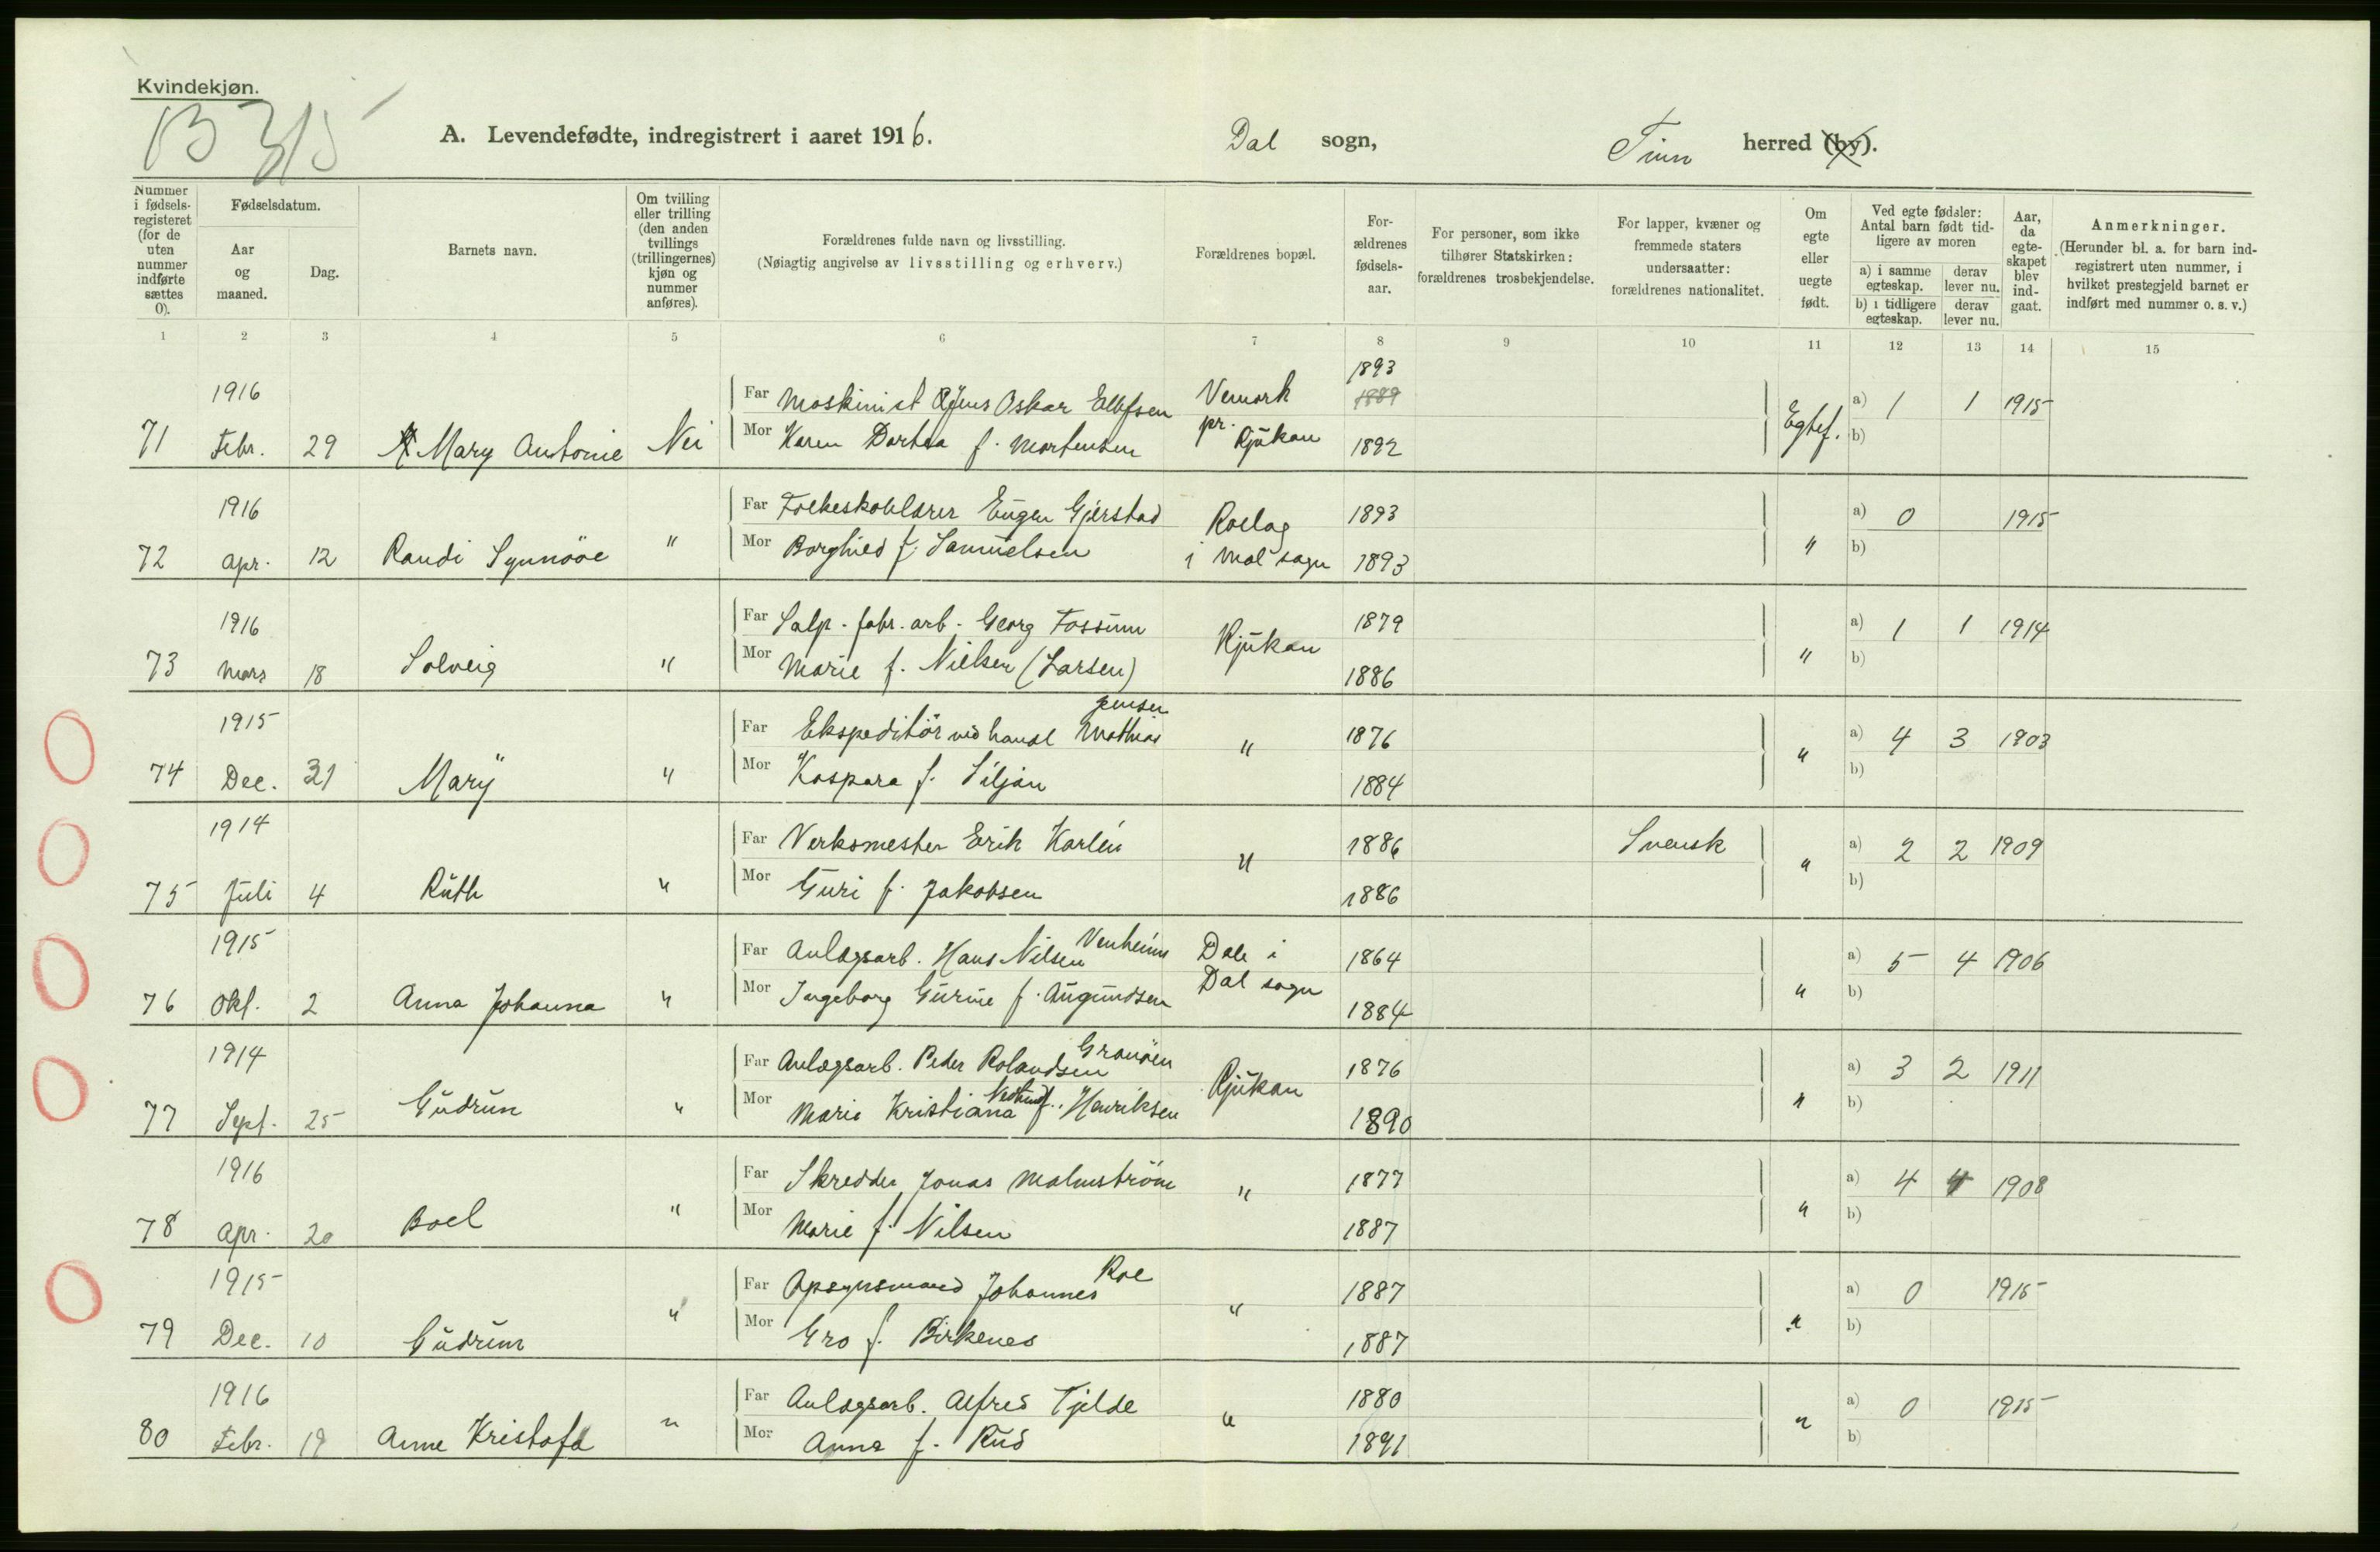 Kvindekjøn.
B 315
A. Levendefødte, indregistrert i aaret 1916. Dal sogn, Tinn herred (by).
Nummer i fødsels-registeret (for de uten nummer indførte sættes 0).
Fødselsdatum.
Aar og maaned.
Dag.
Barnets navn.
Om tvilling eller trilling (den anden tvillings (trillingernes) kjøn og nummer anføres).
Forældrenes fulde navn og livsstilling.
(Nøiagtig angivelse av livsstilling og erhverv.)
Forældrenes bopæl.
For-ældrenes fødsels-aar.
For personer, som ikke tilhører Statskirken: forældrenes trosbekjendelse.
For lapper, kvæner og fremmede staters undersaatter: forældrenes nationalitet.
Om egte eller uegte født.
Ved egte fødsler: Antal barn født tid-ligere av moren
a) i samme egteskap. derav lever nu.
b) i tidligere egteskap. derav lever nu.
Aar, da egte-skapet blev ind-gaat.
Anmerkninger.
(Herunder bl. a. for barn ind-registrert uten nummer, i hvilket prestegjeld barnet er indført med nummer o. s. v.)
1 2 3 4 5 6 7 8 9 10 11 12 13 14 15
1916 Far Maskinist Jens Oskar Ellefsen Vemork 1893 1889 a) 1 1 1915
71 Febr. 29 Mary Antonie Nei Mor Karen Dortea f. Mortensen pr. Rjukan 1892 Egtef. b)
1916 Far Folkeskolelærer Eugen Gjerstad Rollag 1893 a) 0 1915
72 Apr. 12 Randi Synnöve " Mor Borghild f. Samuelsen i Mæl sogn 1893 " b)
1916 Far Salp. fabr. arb. Georg Fossum Rjukan 1879 a) 1 1 1914
73 Mars 18 Solveig " Mor Marie f. Nielsen (Larsen) 1886 " b)
1915 Far Ekspeditör ved handl Mathias Jensen " 1876 a) 4 3 1903
74 Dec. 31 Mary " Mor Kaspara f. Siljan 1884 " b)
1914 Far Verksmester Erik Karlén " 1886 Svensk a) 2 2 1909
75 Juli 4 Ruth " Mor Guri f. Jakobsen 1886 " b)
1915 Far Anlægsarb. Hans Nilsen Venheim Dale i 1864 a) 5 4 1906
76 Okt. 2 Anna Johanna " Mor Ingeborg Gurine f. Augundsen Dal sogn 1884 " b)
1914 Far Anlægsarb. Peder Rolandsen Granöien Rjukan 1876 a) 3 2 1911
77 Sept. 25 Gudrun " Mor Marie Kristiana f. Henriksen 1890 " b)
1916 Far Skredder Jonas Malmström " 1877 a) 4 4 1908
78 Apr. 20 Boel " Mor Marie f. Nilsen 1887 " b)
1915 Far Opsynsmand Johannes Roe " 1887 a) 0 1915
79 Dec. 10 Gudrun " Mor Gro f. Birkenes 1887 " b)
1916 Far Anlægsarb. Alfred Tjelde " 1880 a) 0 1915
80 Febr. 19 Anne Kristofa " Mor Anna f. Rud 1891 " b)